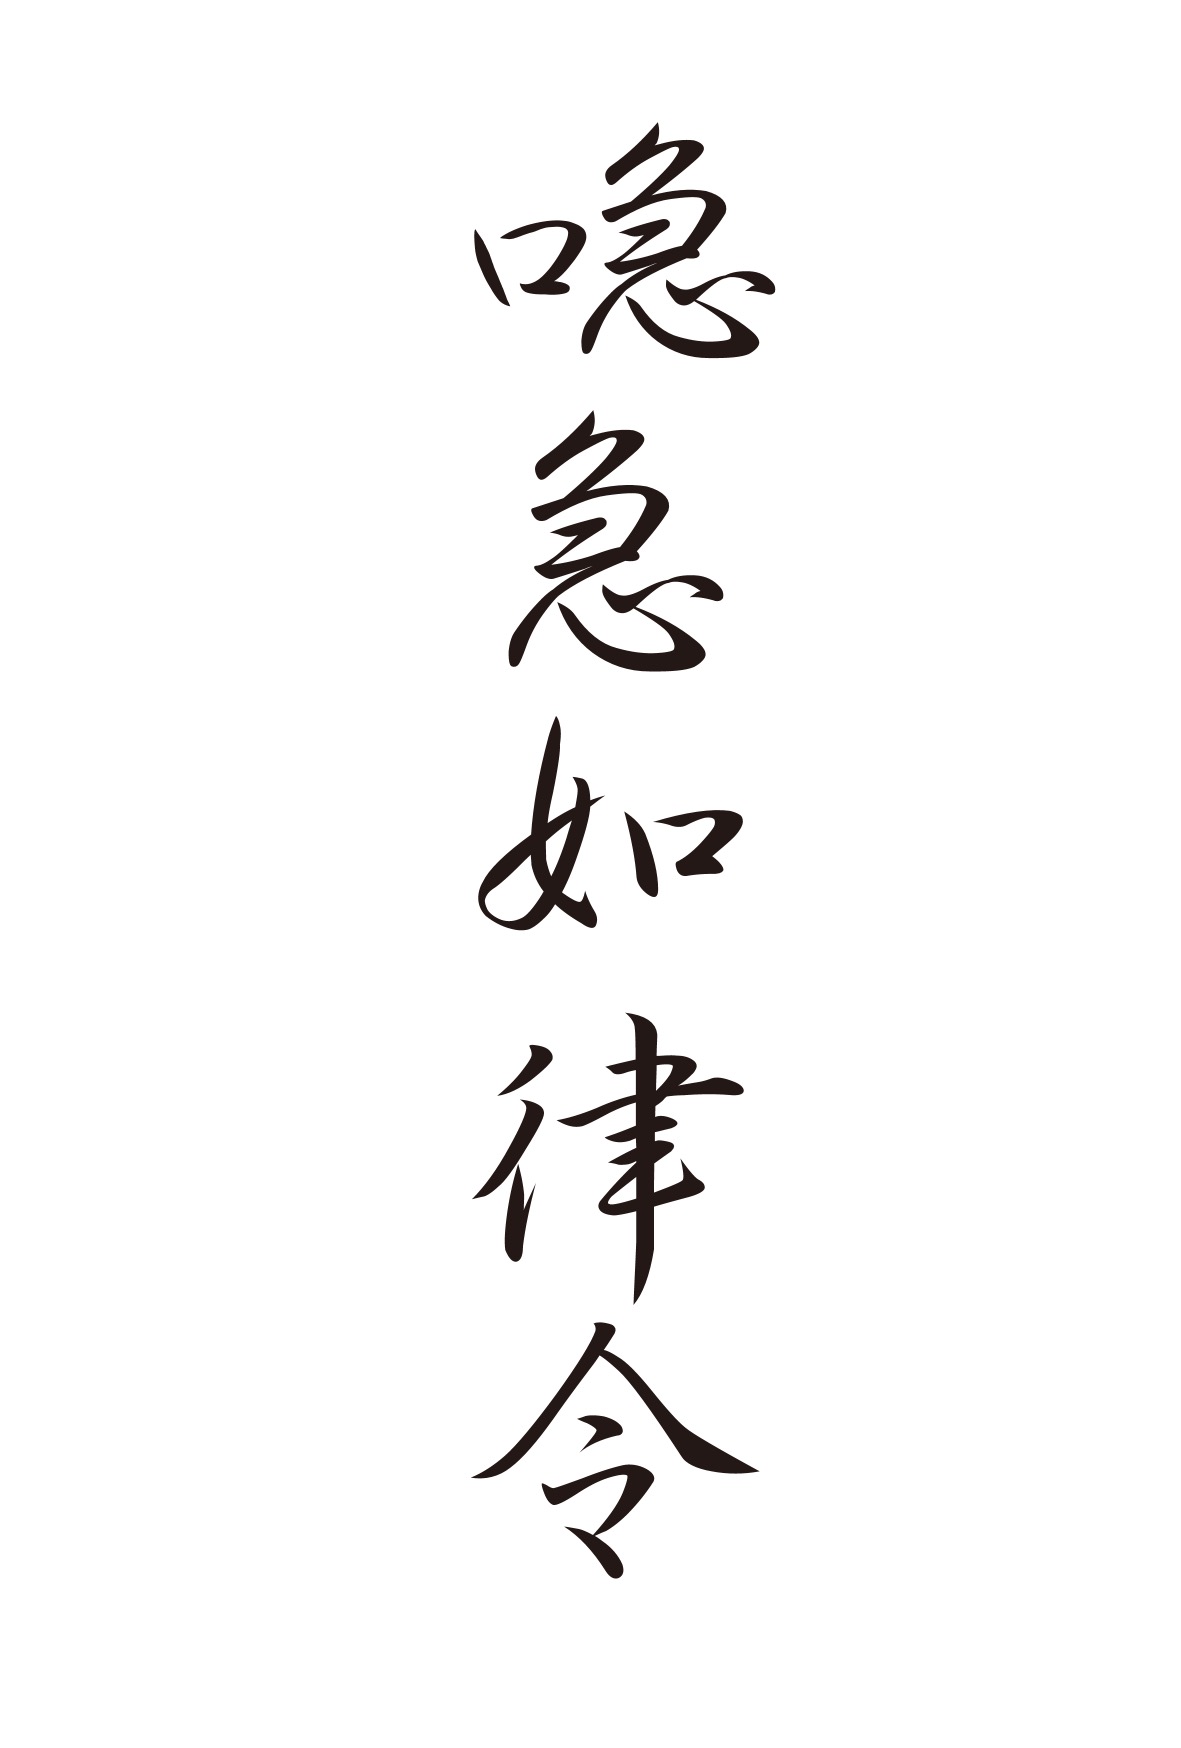 喼急如律令